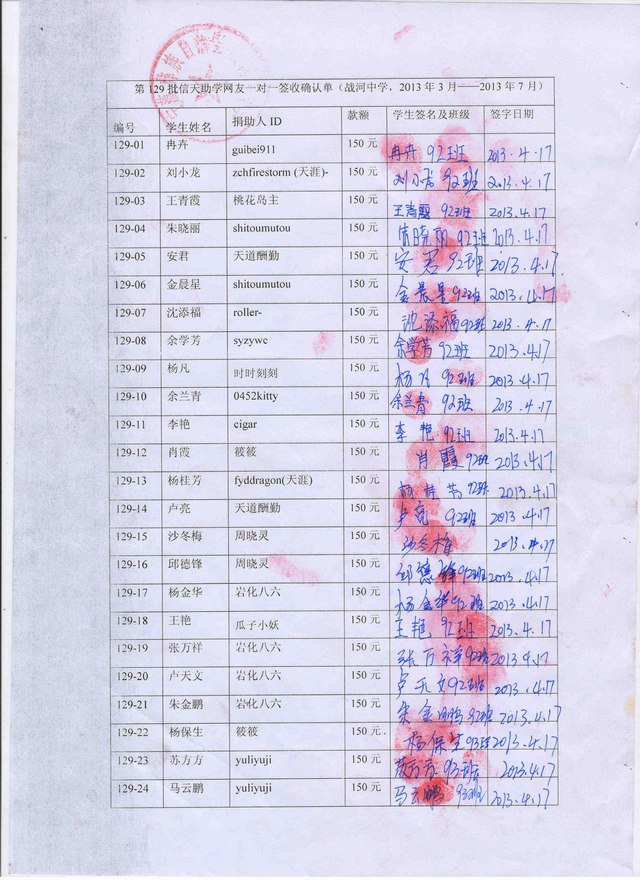 第129批信天助学网友一对一签收确认单(战河中学,2013年3月——2013年7月)
编号 学生姓名 捐助人 ID 款额 学生签名及班级 签字日期
129-01 冉卉 guibei911 150 元 冉卉 92班 2013.4.17
129-02 刘小龙 zchfirestorm (天涯)- 150 元 刘小龙 92班 2013.4.17
129-03 王青霞 桃花岛主 150 元 王青霞 92班 2013.4.17
129-04 朱晓丽 shitoumutou 150 元 朱晓丽 92班 2013.4.17
129-05 安君 天道酬勤 150 元 安君 92班 2013.4.17
129-06 金晨星 shitoumutou 150 元 金晨星 92班 2013.4.17
129-07 沈添福 roller- 150 元 沈添福 92班 2013.4.17
129-08 余学芳 syzywc 150 元 余学芳 92班 2013.4.17
129-09 杨凡 时时刻刻 150 元 杨凡 92班 2013.4.17
129-10 余兰青 0452kitty 150 元 余兰青 92班 2013.4.17
129-11 李艳 cigar 150 元 李艳 92班 2013.4.17
129-12 肖霞 筱筱 150 元 肖霞 92班 2013.4.17
129-13 杨桂芳 fyddragon(天涯) 150 元 杨桂芳 92班 2013.4.17
129-14 卢亮 天道酬勤 150 元 卢亮 92班 2013.4.17
129-15 沙冬梅 周晓灵 150 元 沙冬梅 2013.4.17
129-16 邱德锋 周晓灵 150 元 邱德锋 92班 2013.4.17
129-17 杨金华 岩化八六 150 元 杨金华 92班 2013.4.17
129-18 王艳 瓜子小妖 150 元 王艳 92班 2013.4.17
129-19 张万祥 岩化八六 150 元 张万祥 92班 2013.4.17
129-20 卢天文 岩化八六 150 元 卢天文 92班 2013.4.17
129-21 朱金鹏 岩化八六 150 元 朱金鹏 92班 2013.4.17
129-22 杨保生 筱筱 150 元. 杨保生 93班 2013.4.17
129-23 苏方方 yuliyuji 150 元 苏方方 93班 2013.4.17
129-24 马云鹏 yuliyuji 150 元 马云鹏 93班 2013.4.17